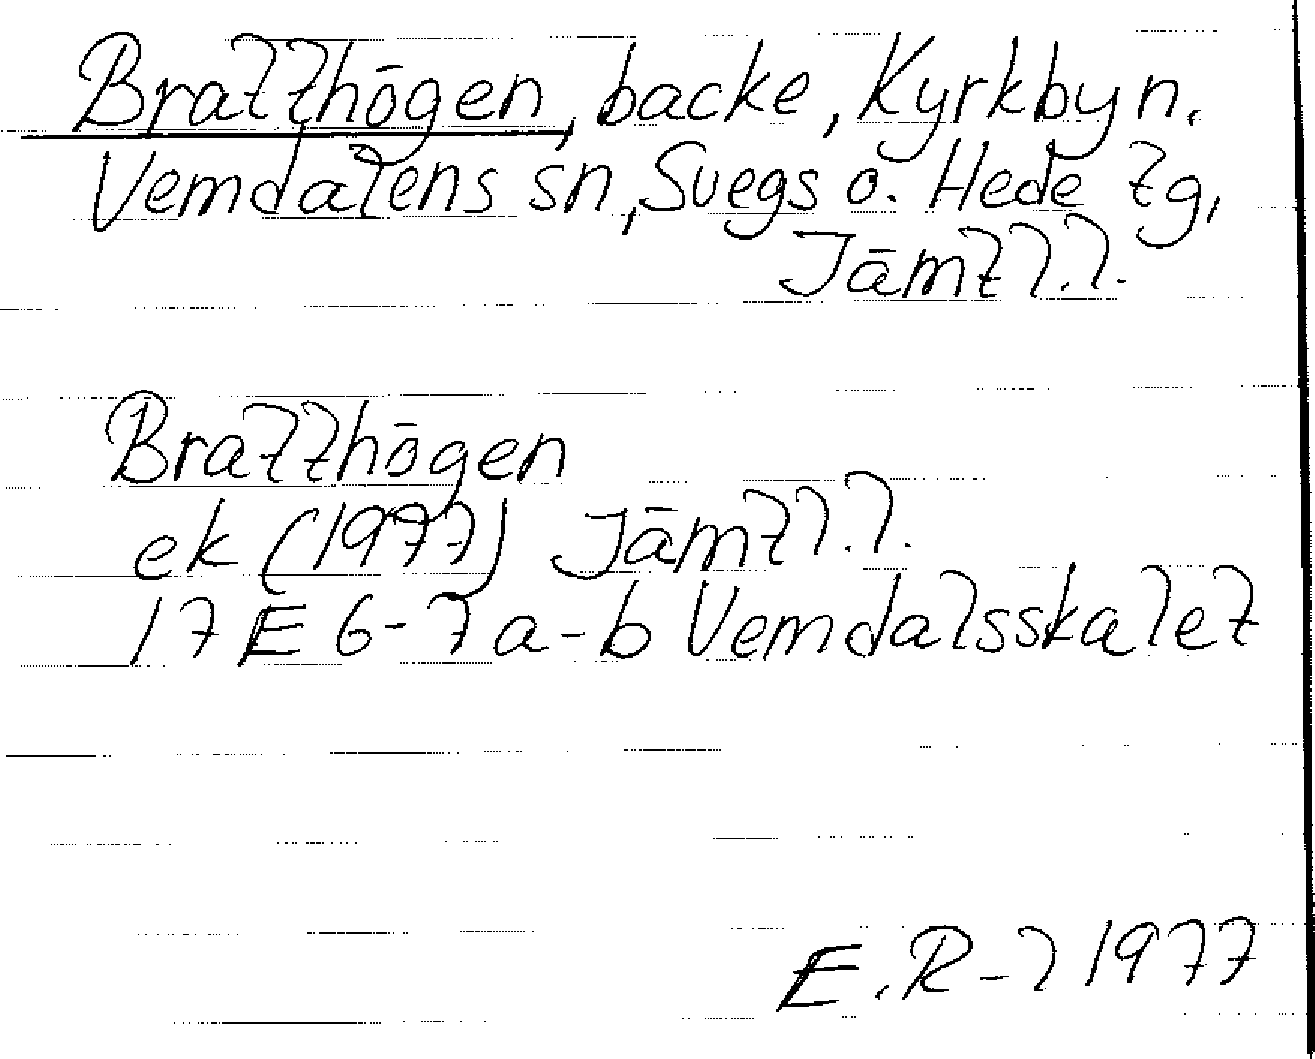 Bratthögen, backe, Kyrkbyn.
Vemdalens sn, Svegs o. Hede tg,
Jämtl.l.
Bratthögen
ek (1977) Jämtl.l.
17 E 6-7 a-b Vemdalsskalet
E.R-l 1977